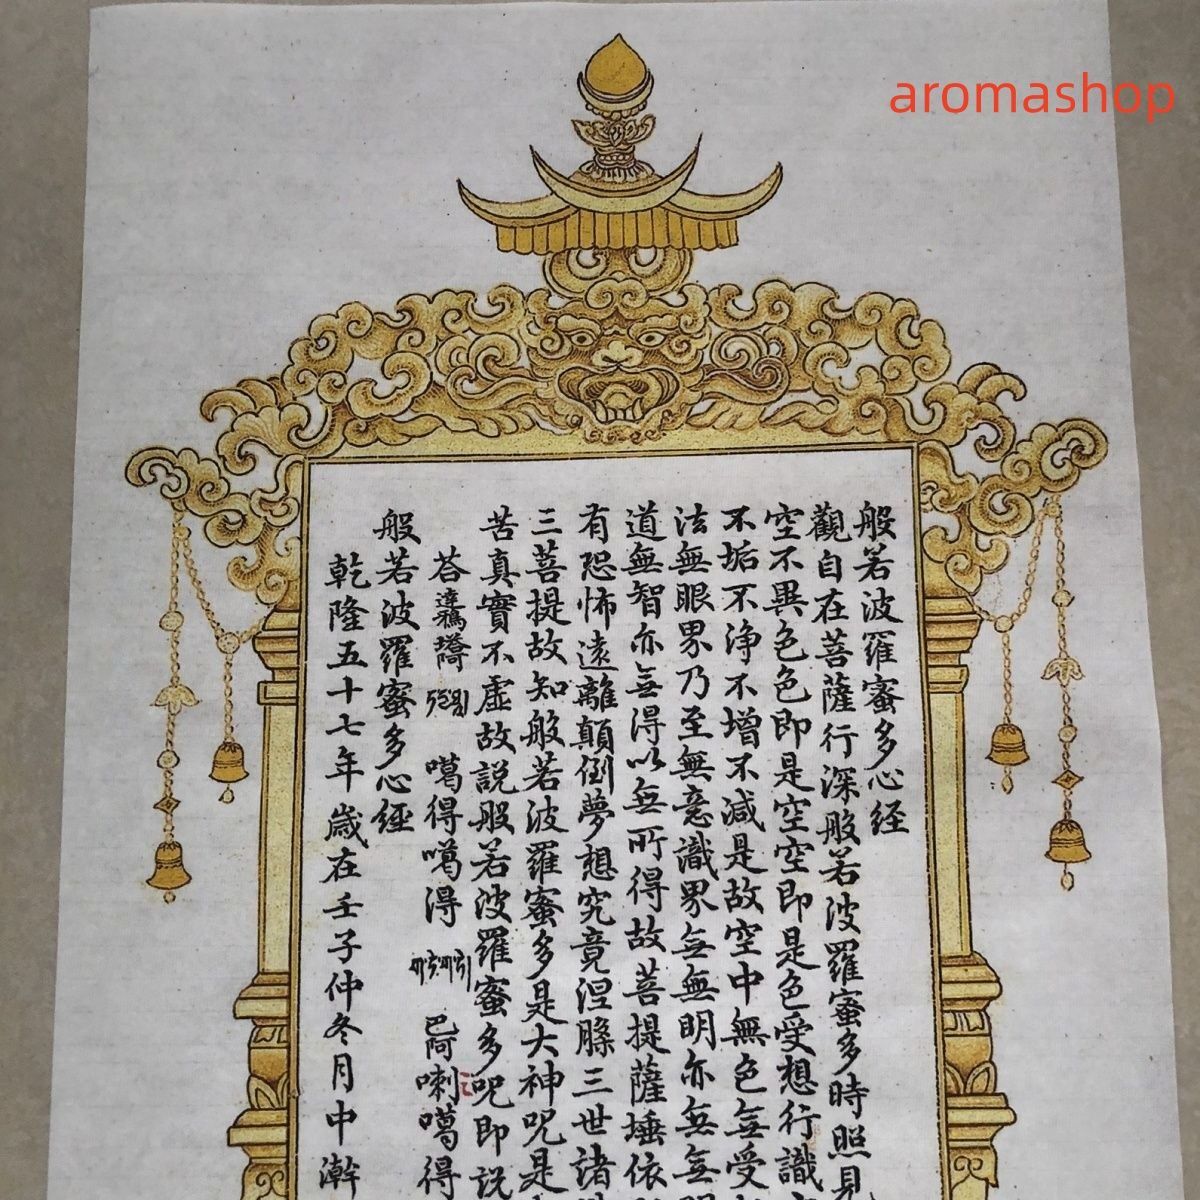 aromashop
般若波羅蜜多心経
觀自在菩薩行深般若波羅蜜多時照見
空不異色色即是空空即是色受想行識
不垢不淨不增不減是故空中無色無受
法無眼界乃至無意識界無無明亦無無
道無智亦無得以無所得故菩提薩埵依
有恐怖遠離顛倒夢想究竟涅槃三世諸
三菩提故知般若波羅蜜多是大神咒是
苦真實不虛故説般若波羅蜜多咒即説
荅達
噶得噶得
巴阿喇噶得
般若波羅蜜多心經
乾隆五十七年歲在壬子仲冬月中澣